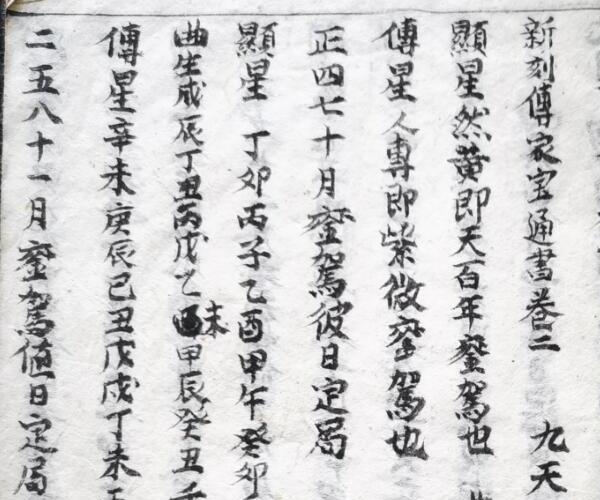 新刻傳家宝通書卷二 九天
顯星然黃即天百年銮駕也
傳星人專即紫微銮駕也
正四七十月銮駕彼日定局
顯星 丁卯丙子乙酉甲午癸卯
曲生戍辰丁丑丙戊乙未甲辰癸丑壬
傳星辛未庚辰己丑戊戍丁未
二五八十一月銮駕值日定局